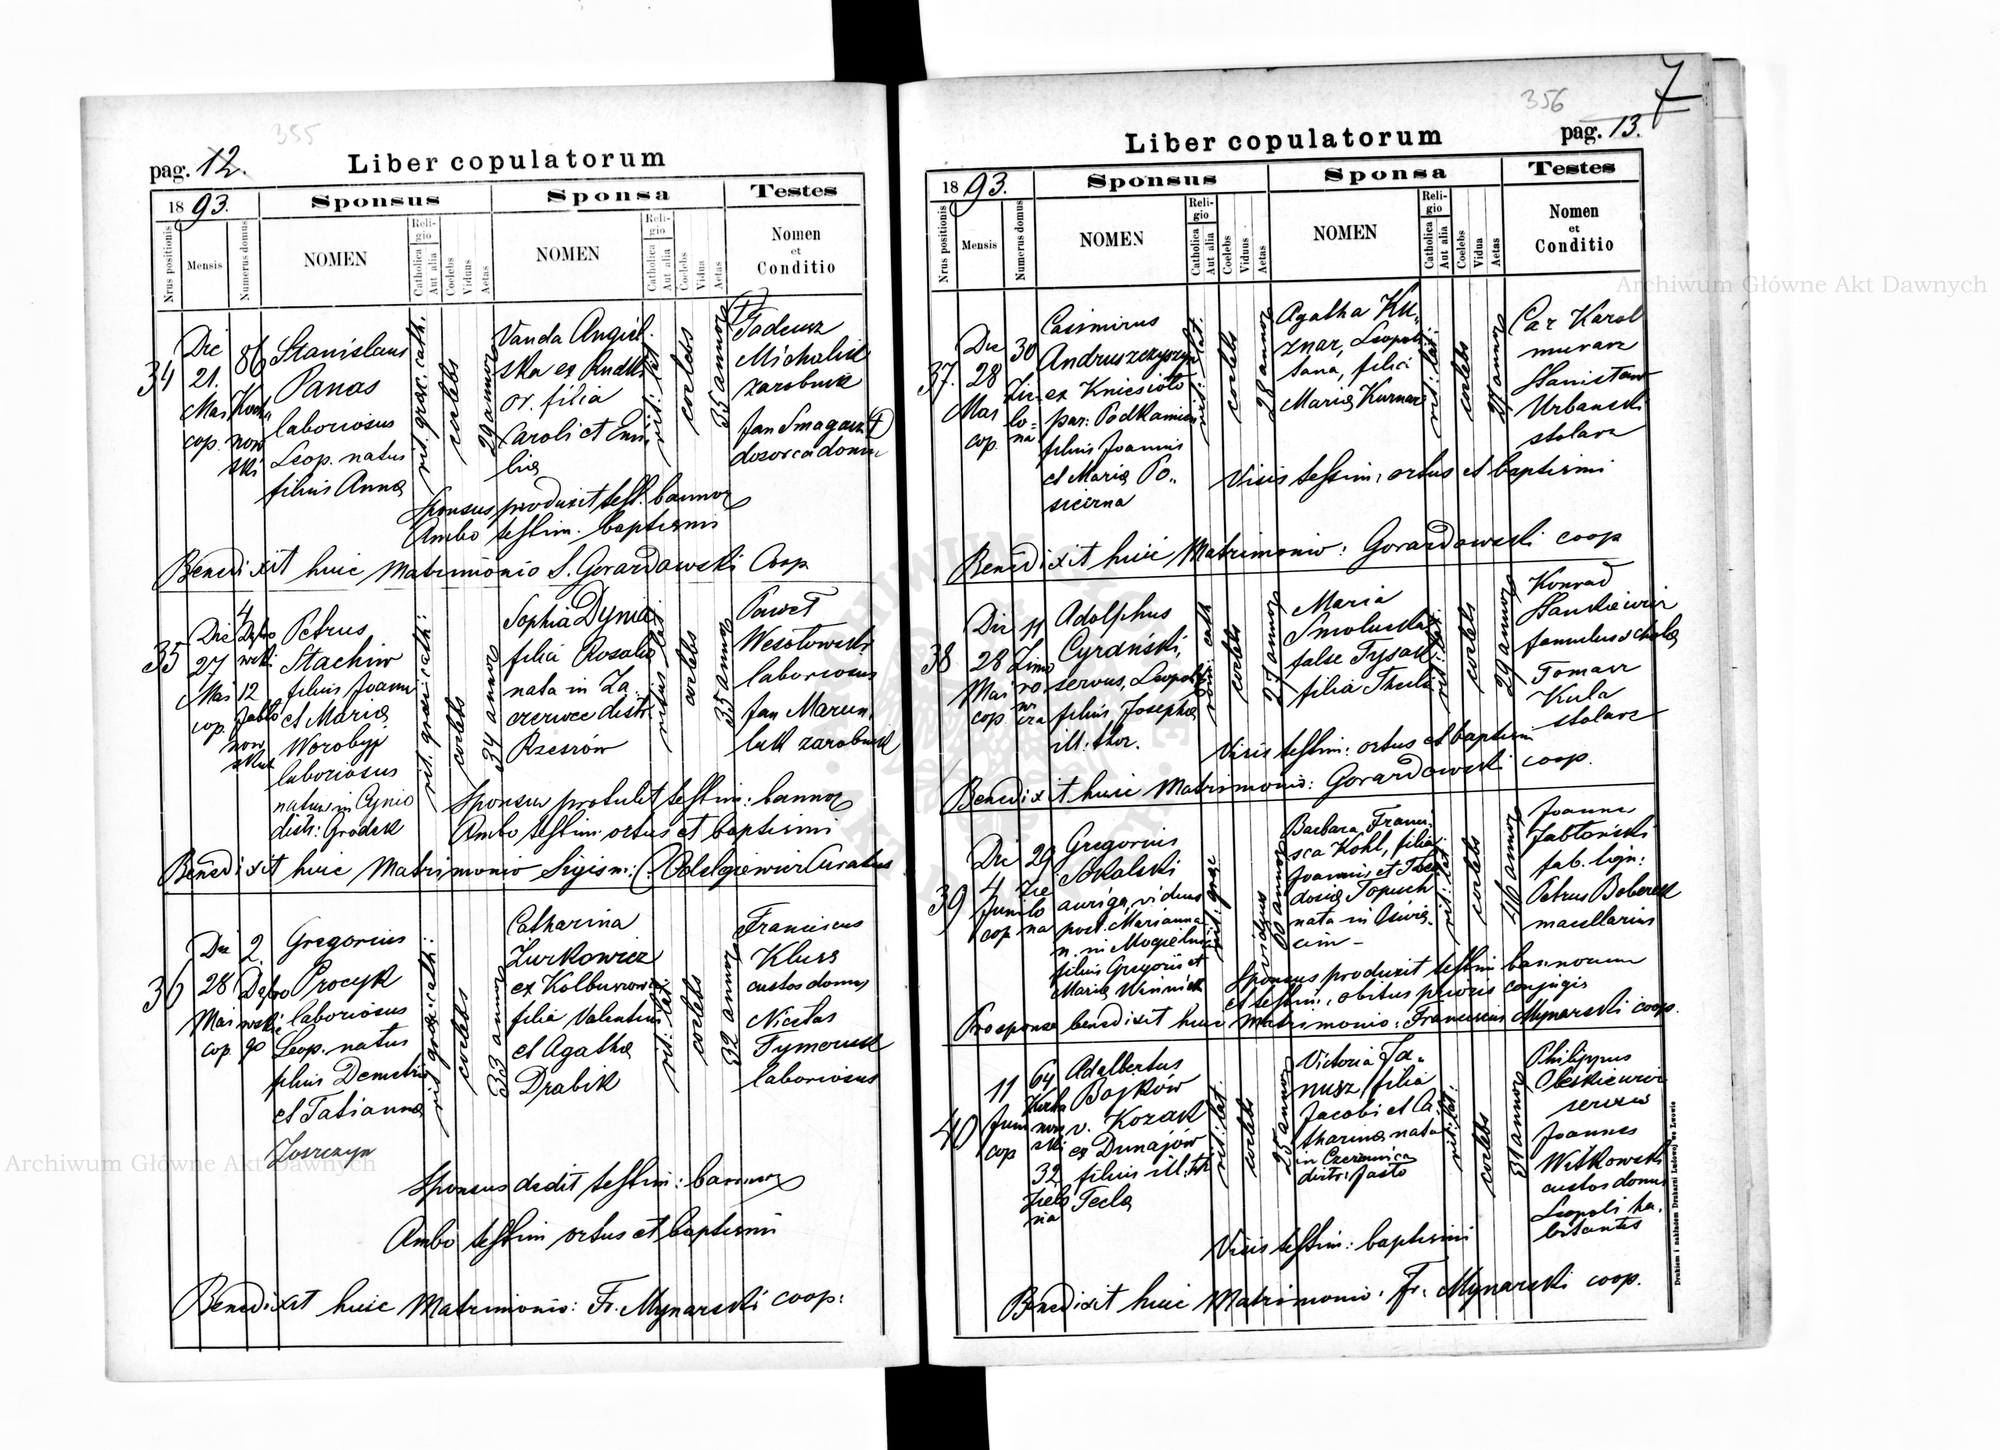 355
pag. 12.
Liber copulatorum
1893.
Sponsus
Sponsa
Testes
Nrus positionis
Mensis
Numerus domus
NOMEN
Religio
Catholica
Aut alia
Coelebs
Viduus
Aetas
NOMEN
Religio
Catholica
Aut alia
Coelebs
Vidua
Aetas
Nomen
et
Conditio
34
Die
21.
Mai
cop.
86
Kocha
now
ski
Stanislaus
Panas
laboriosus
Leop. natus
filius Annae
rit. graec. cath.
coelebs
29 annor
Vanda Angiel
ska ex Rudk
or. filia
Caroli et Emi
liae
rit: lat
coelebs
35 annor
Tadeusz
Michalik
zarobnik
Jan Smagacz
dozorca domu
Sponsus produxit testt. bannor
Ambo testim. baptismi
Benedixit huic Matrimonio S. Gorazdowski Coop
35
Die
27
Mai
cop.
4
Dąbro
wski
12
Jabło
now
skich
Petrus
Stachiw
filius Joann
et Maria
Worobyj
laboriosus
natus in
distr: Gródek
rit. graec: cath:
coelebs
34 annor
Sophia Dynia
filia Rosalia
nata in Za
czernie distr.
Rzeszów
ritus lat
coelebs
35 annor
Paweł
Wesołowski
laboriosus
Jan Marcin
luk zarobnik
Sponsus protulit testim: bannor
Ambo testim: ortus et baptismi
Benedixit huic Matrimonio Sigism: Odelgiewicz Curatus
36
Die
28
Mai
cop.
2.
Dąbro
wski
90
Gregorius
Procyk
laboriosus
Leop. natus
filius Demetrii
et Tatianna
rit graec: cath:
coelebs
33 annor
Catharina
Żurkowicz
ex Kolbuszowa
filia Valentini
et Agatha
Drabik
rit: lat.
coelebs
32 annor
Franciscus
Kluss
custos domus
Nicetas
Tymczuk
laboriosus
Sponsus dedit testim: bannor
Ambo testim ortus et baptismi
Benedixit huic Matrimonio: Fr. Mynarski coop:
356
7
Liber copulatorum
pag. 13.
1893.
Sponsus
Sponsa
Testes
Nrus positionis
Mensis
Numerus domus
NOMEN
Religio
Catholica
Aut alia
Coelebs
Viduus
Aetas
NOMEN
Religio
Catholica
Aut alia
Coelebs
Vidua
Aetas
Nomen
et
Conditio
37.
Die
28
Mai
cop.
30
Zie
lo=
na
Casimirus
Andruszczyszyn
ex Kniesioło
par: Podkamien
filius Joannis
et Maria Po„
siczna
rit: lat.
coelebs
28 annor
Agatha Ku„
znar, Leopoli
tana, filia
Maria Kuznar
rit: lat:
coelebs
27 annor
Car Karol
murarz
Stanisław
Urbanski
stolarz
Visis testim: ortus et baptismi
Benedixit huic Matrimonio: Gorazdowski coop
38
Die
28
Mai
cop
11
Zimo
ro
w
icza
Adolphus
Cyrański,
servus, Leopoli
filius Josepha
ill: thor.
rom: cath
coelebs
27 annor
Maria
Smoluska
false Tysak
filia Thecla
rit: lat:
coelebs
29 annor
Konrad
Hankiewicz
famulus schola
Tomasz
Kula
stolarz
Visis testim: ortus et baptismi
Benedixit huic Matrimonio: Gorazdowski coop.
39
Die
4
Juni
cop
29
Zie
lo
na
Gregorius
Sokalski
auriga, viduus
post. Marianna
n. in Mogielnica
filius Gregorii et
Maria Winnick
rit: graec
viduus
60 annor
Barbara Franci
sca Kohl, filia
Joannis et Theo
dosia Topuch
nata in Oświę
cim –
rit: lat
coelebs
46 annor
Joannes
Jabłoński
fab. lign:
Petrus Boberek
macellarius
Sponsus produxit testim: bannorum
et testim. obitus prioris conjugis
Pro sponsa benedixit huic Matrimonio: Franciscus Mynarski coop.
40
11
Juni
cop
64
Kocha
now
ski
32
Zielo
na
Adalbertus
Bojków
v. Kozak
ex Dunajów
filius ill: th.
Tecla
rit: lat.
coelebs
25 annor
Victoria Ja=
nusz, filia
Jacobi et Ca
tharina nata
in Czermnica
distr: Jasło
rit: lat:
coelebs
31 annor
Philippus
Oleskiewicz
Joannes
Witkowski
custos domus
Leopoli ha.
bitantes
Visis testim: baptismi
Benedixit huic Matrimonio: Fr. Mynarski coop.
Drukiem i nakładem Drukarni Ludowej we Lwowie
Archiwum Główne Akt Dawnych
Archiwum Główne Akt Dawnych